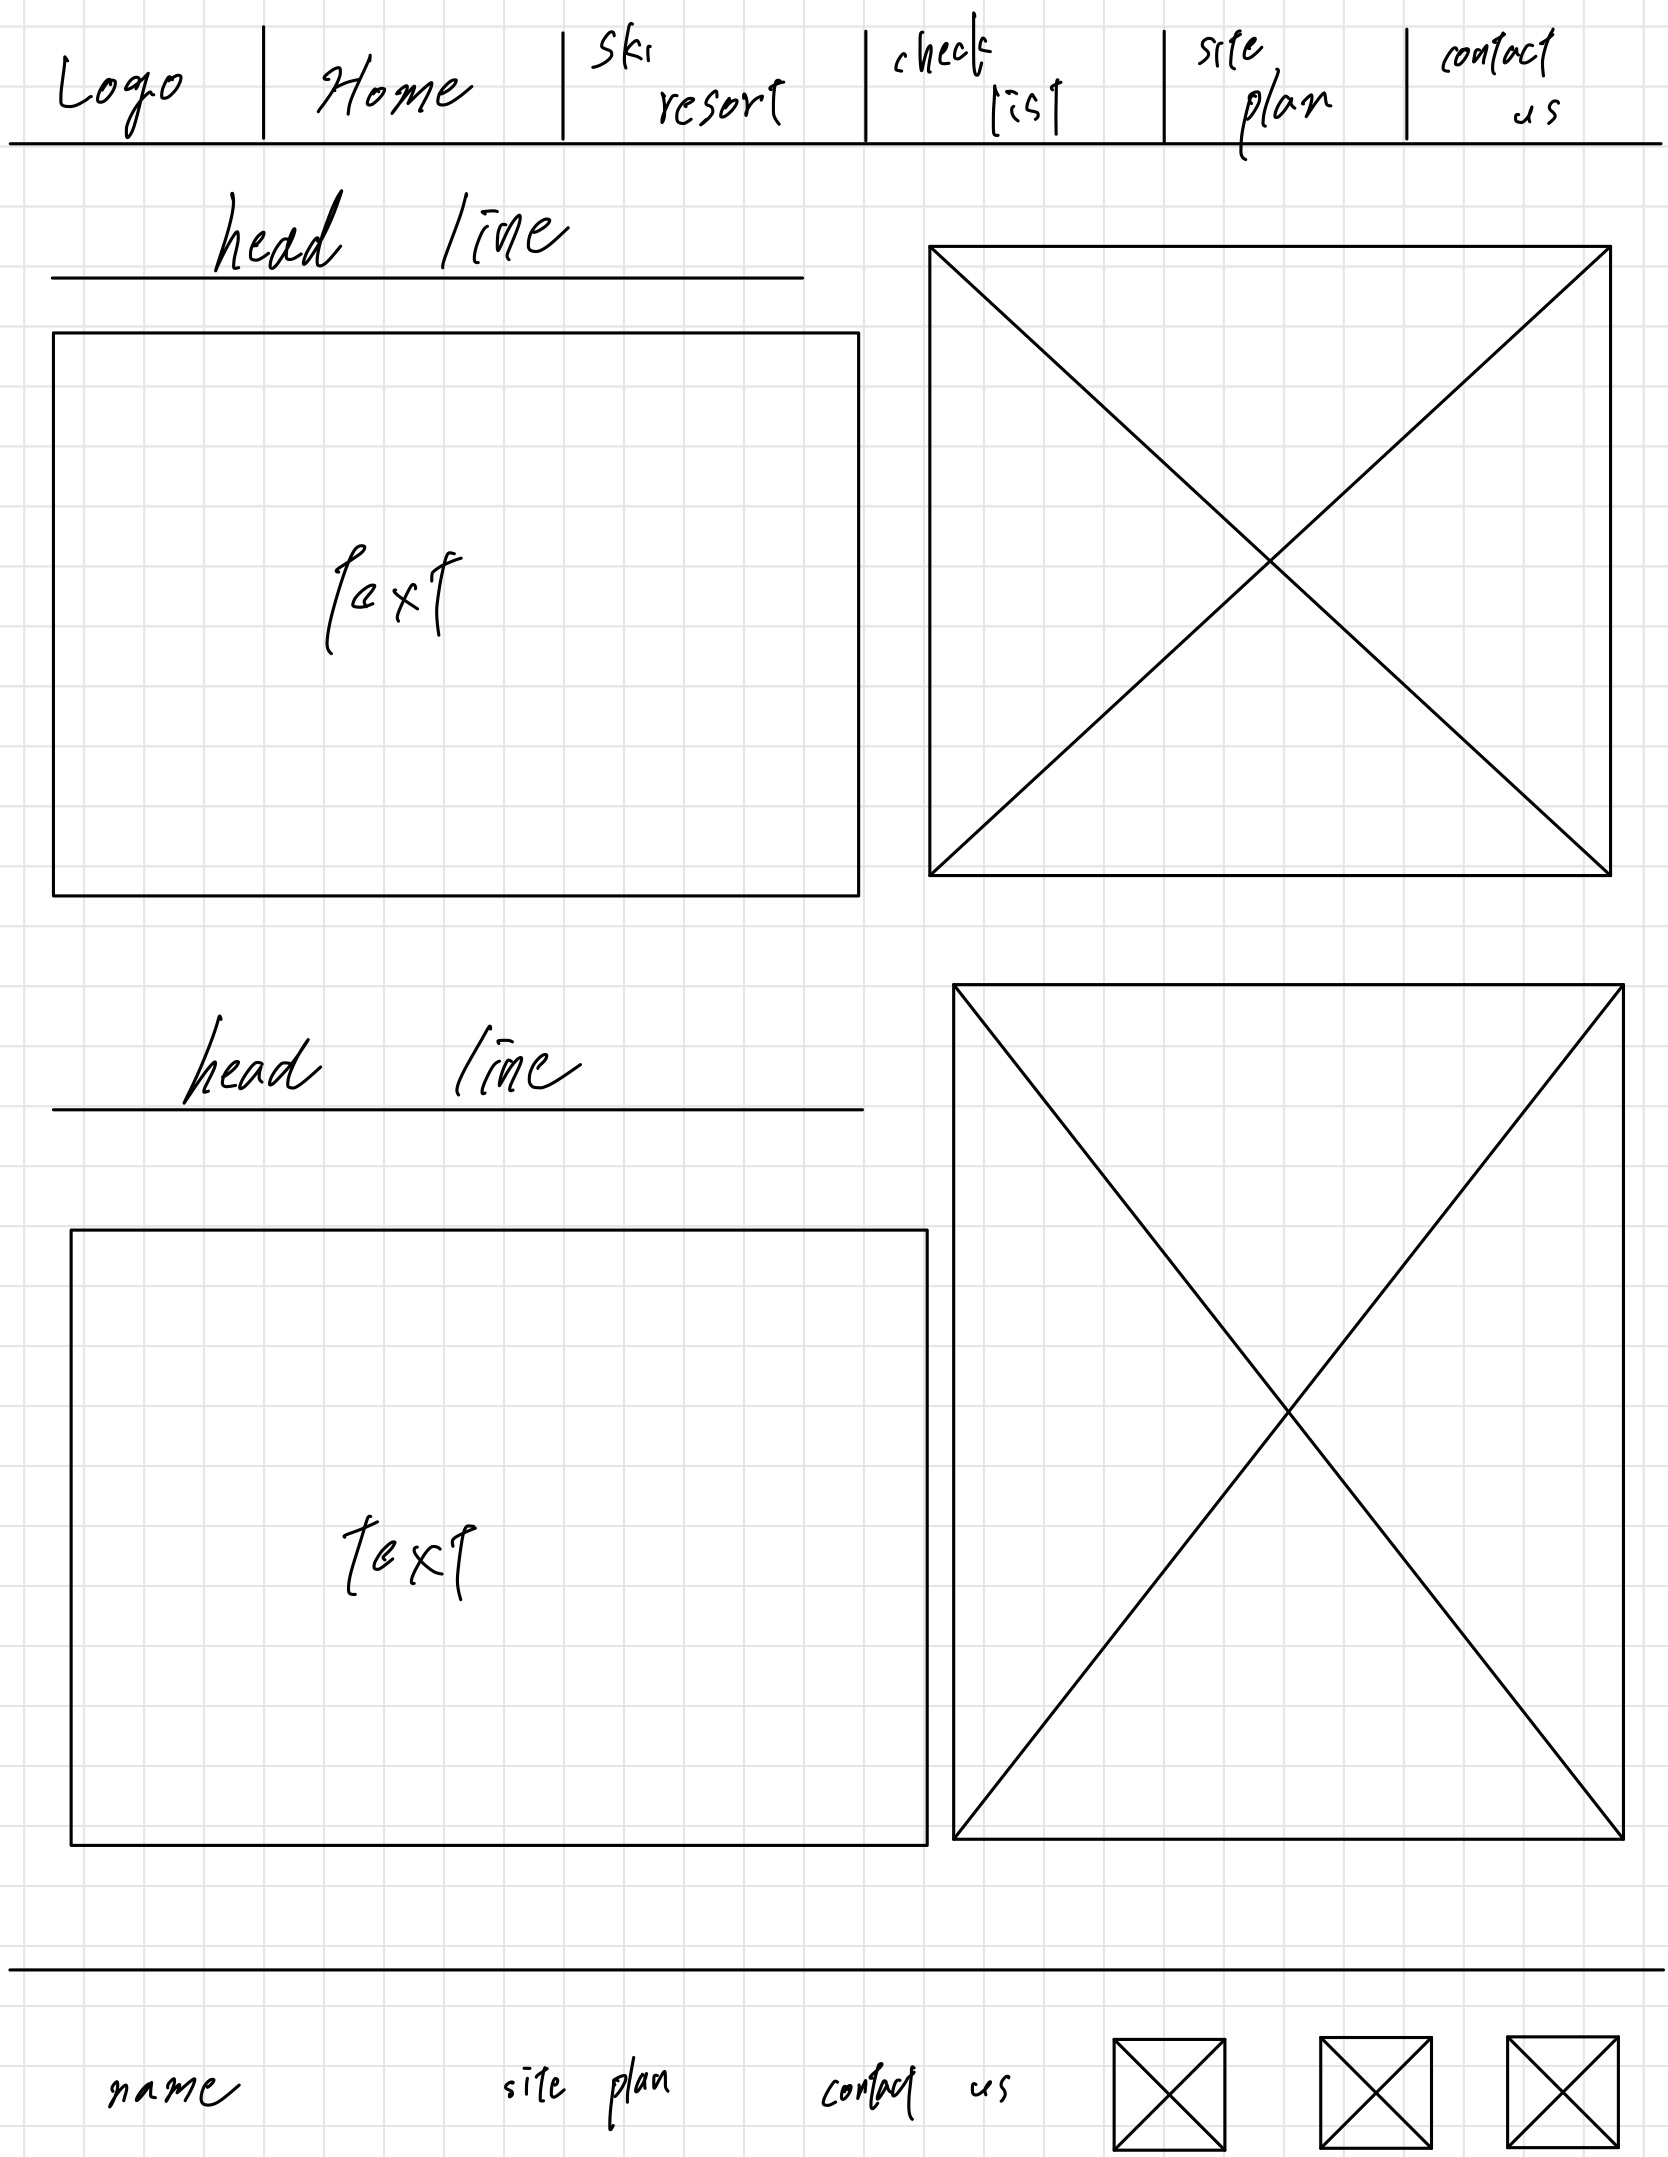 Logo
Home
ski
resort
check
list
site
plan
contact
us
head line
text
head line
text
name
site plan
contact us